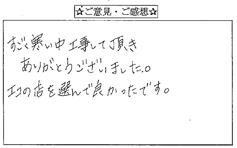 ☆ご意見・ご感想☆
すごく寒い中工事して頂き
ありがとうございました。
エコの店を選んで良かったです。